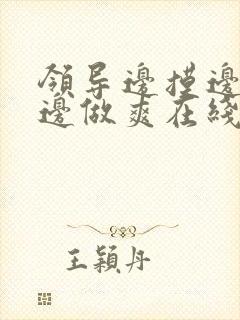 領导邊摸邊
邊做爽在綫
王穎丹